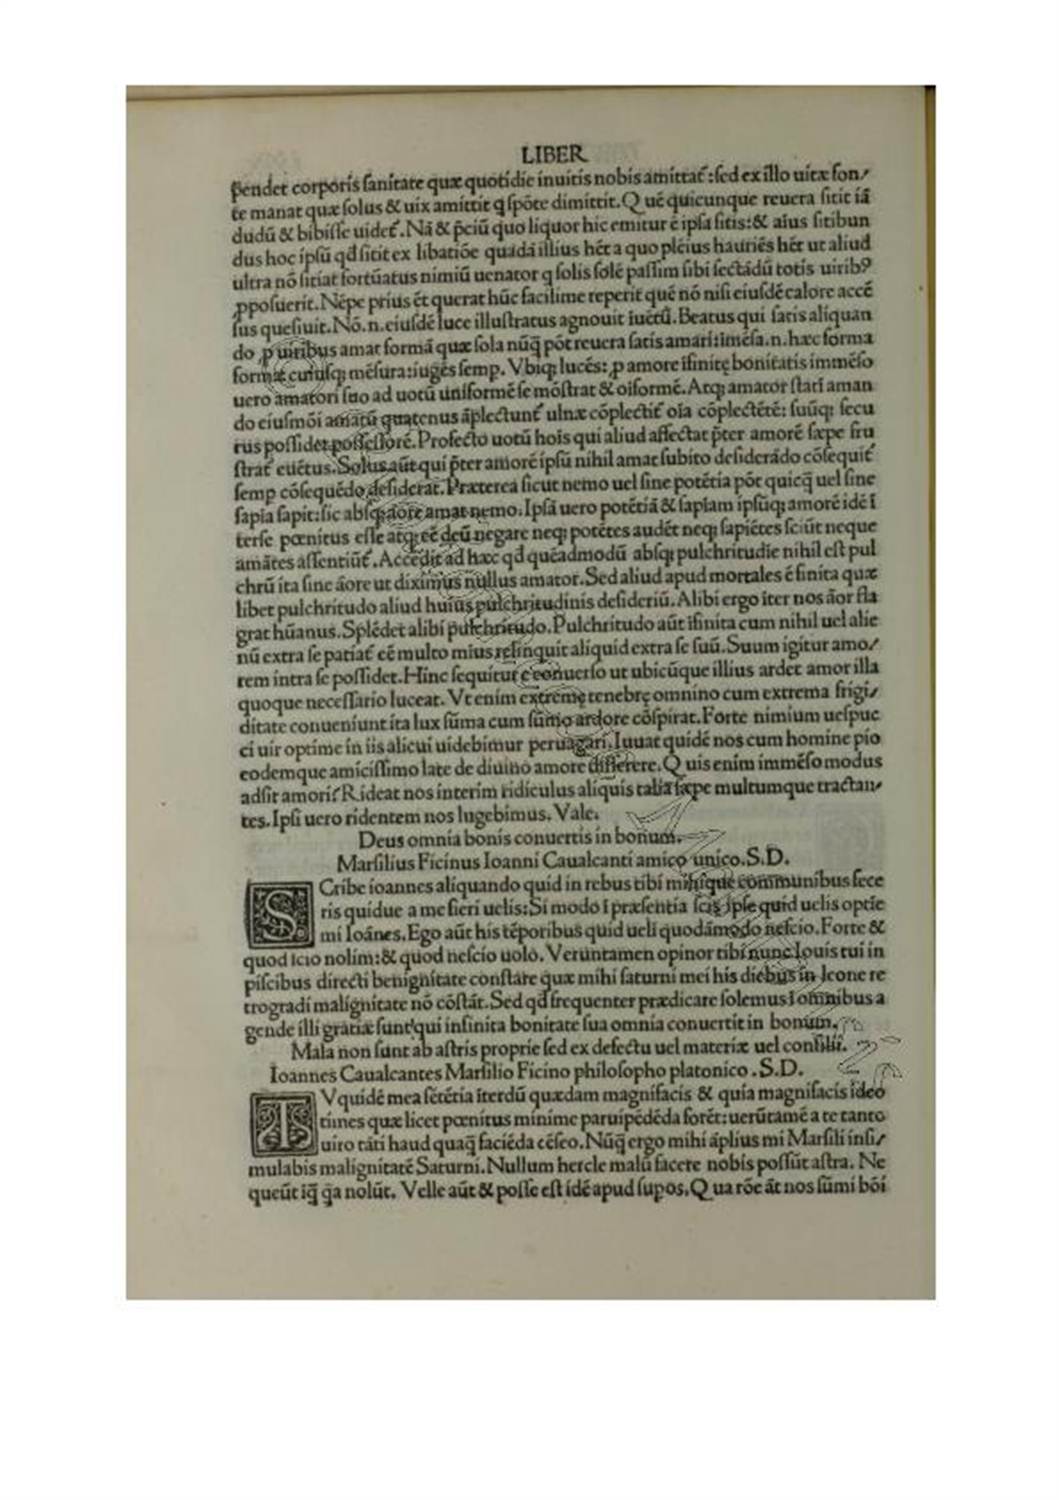 LIBER
pendet corporis sanitate quæ quotidie inuitis nobis amittat᷑: sed ex illo uitæ fon/
te manat quæ solus & uix amittit q̃ spōte dimittit. Q ué quicunque reuera sitit iā
dudū & bibisse uidet᷑. Nā & p̃ciū quo liquor hic emitur ē ipsa sitis: & aīus sitibun
dus hoc ipsū qd̄ sitit ex libatiōe quadā illius hét a quo pleīus hauriēs hét ut aliud
ultra nō sitiat fortūatus nimiū uenator q solis solē passim sibi sectādū totis uirib⁹
ꝓposuerit. Nēpe prius ēt querat hūc facilime reperit quē nō nisi eiusdē calore accē
sus quesiuit. Nō.n. eiusdē luce illustratus agnouit iuētū. Beatus qui satis aliquan
do ꝓ uiribus amat formā quæ sola nūq̃ pōt reuera satis amari: imēsa.n. hæc forma
format cuiusq; mēsura: iuges semp. Vbiq; lucēs: ꝓ amore īfinitę bonitatis immēso
uero amatori suo ad uotū uniformē se mōstrat & oīformē. Atq; amator stati aman
do eiusmōi amatū quatenus āplectunt᷑ ulnæ cōplectit᷑ oīa cōplectētē: suūq; secu
rus possidet possessorē. Profecto uotū hois qui aliud affectat p̃ter amorē sæpe fru
strat᷑ euētus. Solus aūt qui p̃ter amorē ipsū nihil amat subito desiderādo cōsequit᷑
semp cōsequēdo desiderat. Præterea sicut nemo uel sine potētia pōt quicq̃ uel sine
sapīa sapit: sic absq; aōre amat nemo. Ipsā uero potētiā & sapīam ipsūq; amorē idē ī
terse pœnitus esse atq; eē deū negare neq; potētes audēt neq; sapiētes sciūt neque
amātes assentiūt᷑. Accedit ad hæc qd̄ quēadmodū absq; pulchritudīe nihil est pul
chrū ita sine āore ut diximus nullus amator. Sed aliud apud mortales ē finita quæ
libet pulchritudo aliud huius pulchritudinis desideriū. Alibi ergo īter nos āor fla
grat hūanus. Splēdet alibi pulchritudo. Pulchritudo aūt īfinita cum nihil uel alie
nū extra se patiat᷑ eē multo mīus relinquit aliquid extra se suū. Suum igitur amo/
rem intra se possidet. Hinc sequitur e conuerso ut ubicūque illius ardet amor illa
quoque necessario luceat. Vt enim extremę tenebrę omnino cum extrema frigi/
ditate conueniunt ita lux sūma cum sūmo ardore cōspirat. Forte nimium uespuc
ci uir optime in iis alicui uidebimur peruagari. Iuuat quidē nos cum homine pio
eodemque amicissimo late de diuino amore disserere. Q uis enim immēso modus
adsit amori? Rideat nos interim ridiculus aliquis talia sæpe multumque tractan/
tes. Ipsi uero ridentem nos lugebimus. Vale.
Deus omnia bonis conuertis in bonum.
Marsilius Ficinus Ioanni Caualcanti amico unico. S.D.
SCribe ioannes aliquando quid in rebus tibi mihique communibus fece
ris quidue a me fieri uelis: Si modo ī præsentia scis ipse quid uelis optīe
mi Ioānes. Ego aūt his tēporibus quid ueli quodāmodo nescio. Forte &
quod scio nolim: & quod nescio uolo. Veruntamen opinor tibi nunc Iouis tui in
piscibus directi benignitate constare quæ mihi saturni mei his diebus in leone re
trogradi malignitate nō cōstāt. Sed qd̄ frequenter prædicare solemus ī omnibus a
gende illi gratiæ sunt qui infinita bonitate sua omnia conuertit in bonum.
Mala non sunt ab astris proprie sed ex defectu uel materiæ uel consilii.
Ioannes Caualcantes Marsilio Ficino philosopho platonico. S.D.
TV quidē mea sētētia īterdū quædam magnifacis & quia magnifacis ideo
times quæ licet pœnitus minime paruipēdēda forēt: uerūtamē a te tanto
uiro tāti haud quaq̃ faciēda cēseo. Nūq̃ ergo mihi āplius mi Marsili insi/
mulabis malignitatē Saturni. Nullum hercle malū facere nobis possūt astra. Ne
queūt īq̃ q̃a nolūt. Velle aūt & posse est idē apud supos. Q ua rōe āt nos sūmi bōi